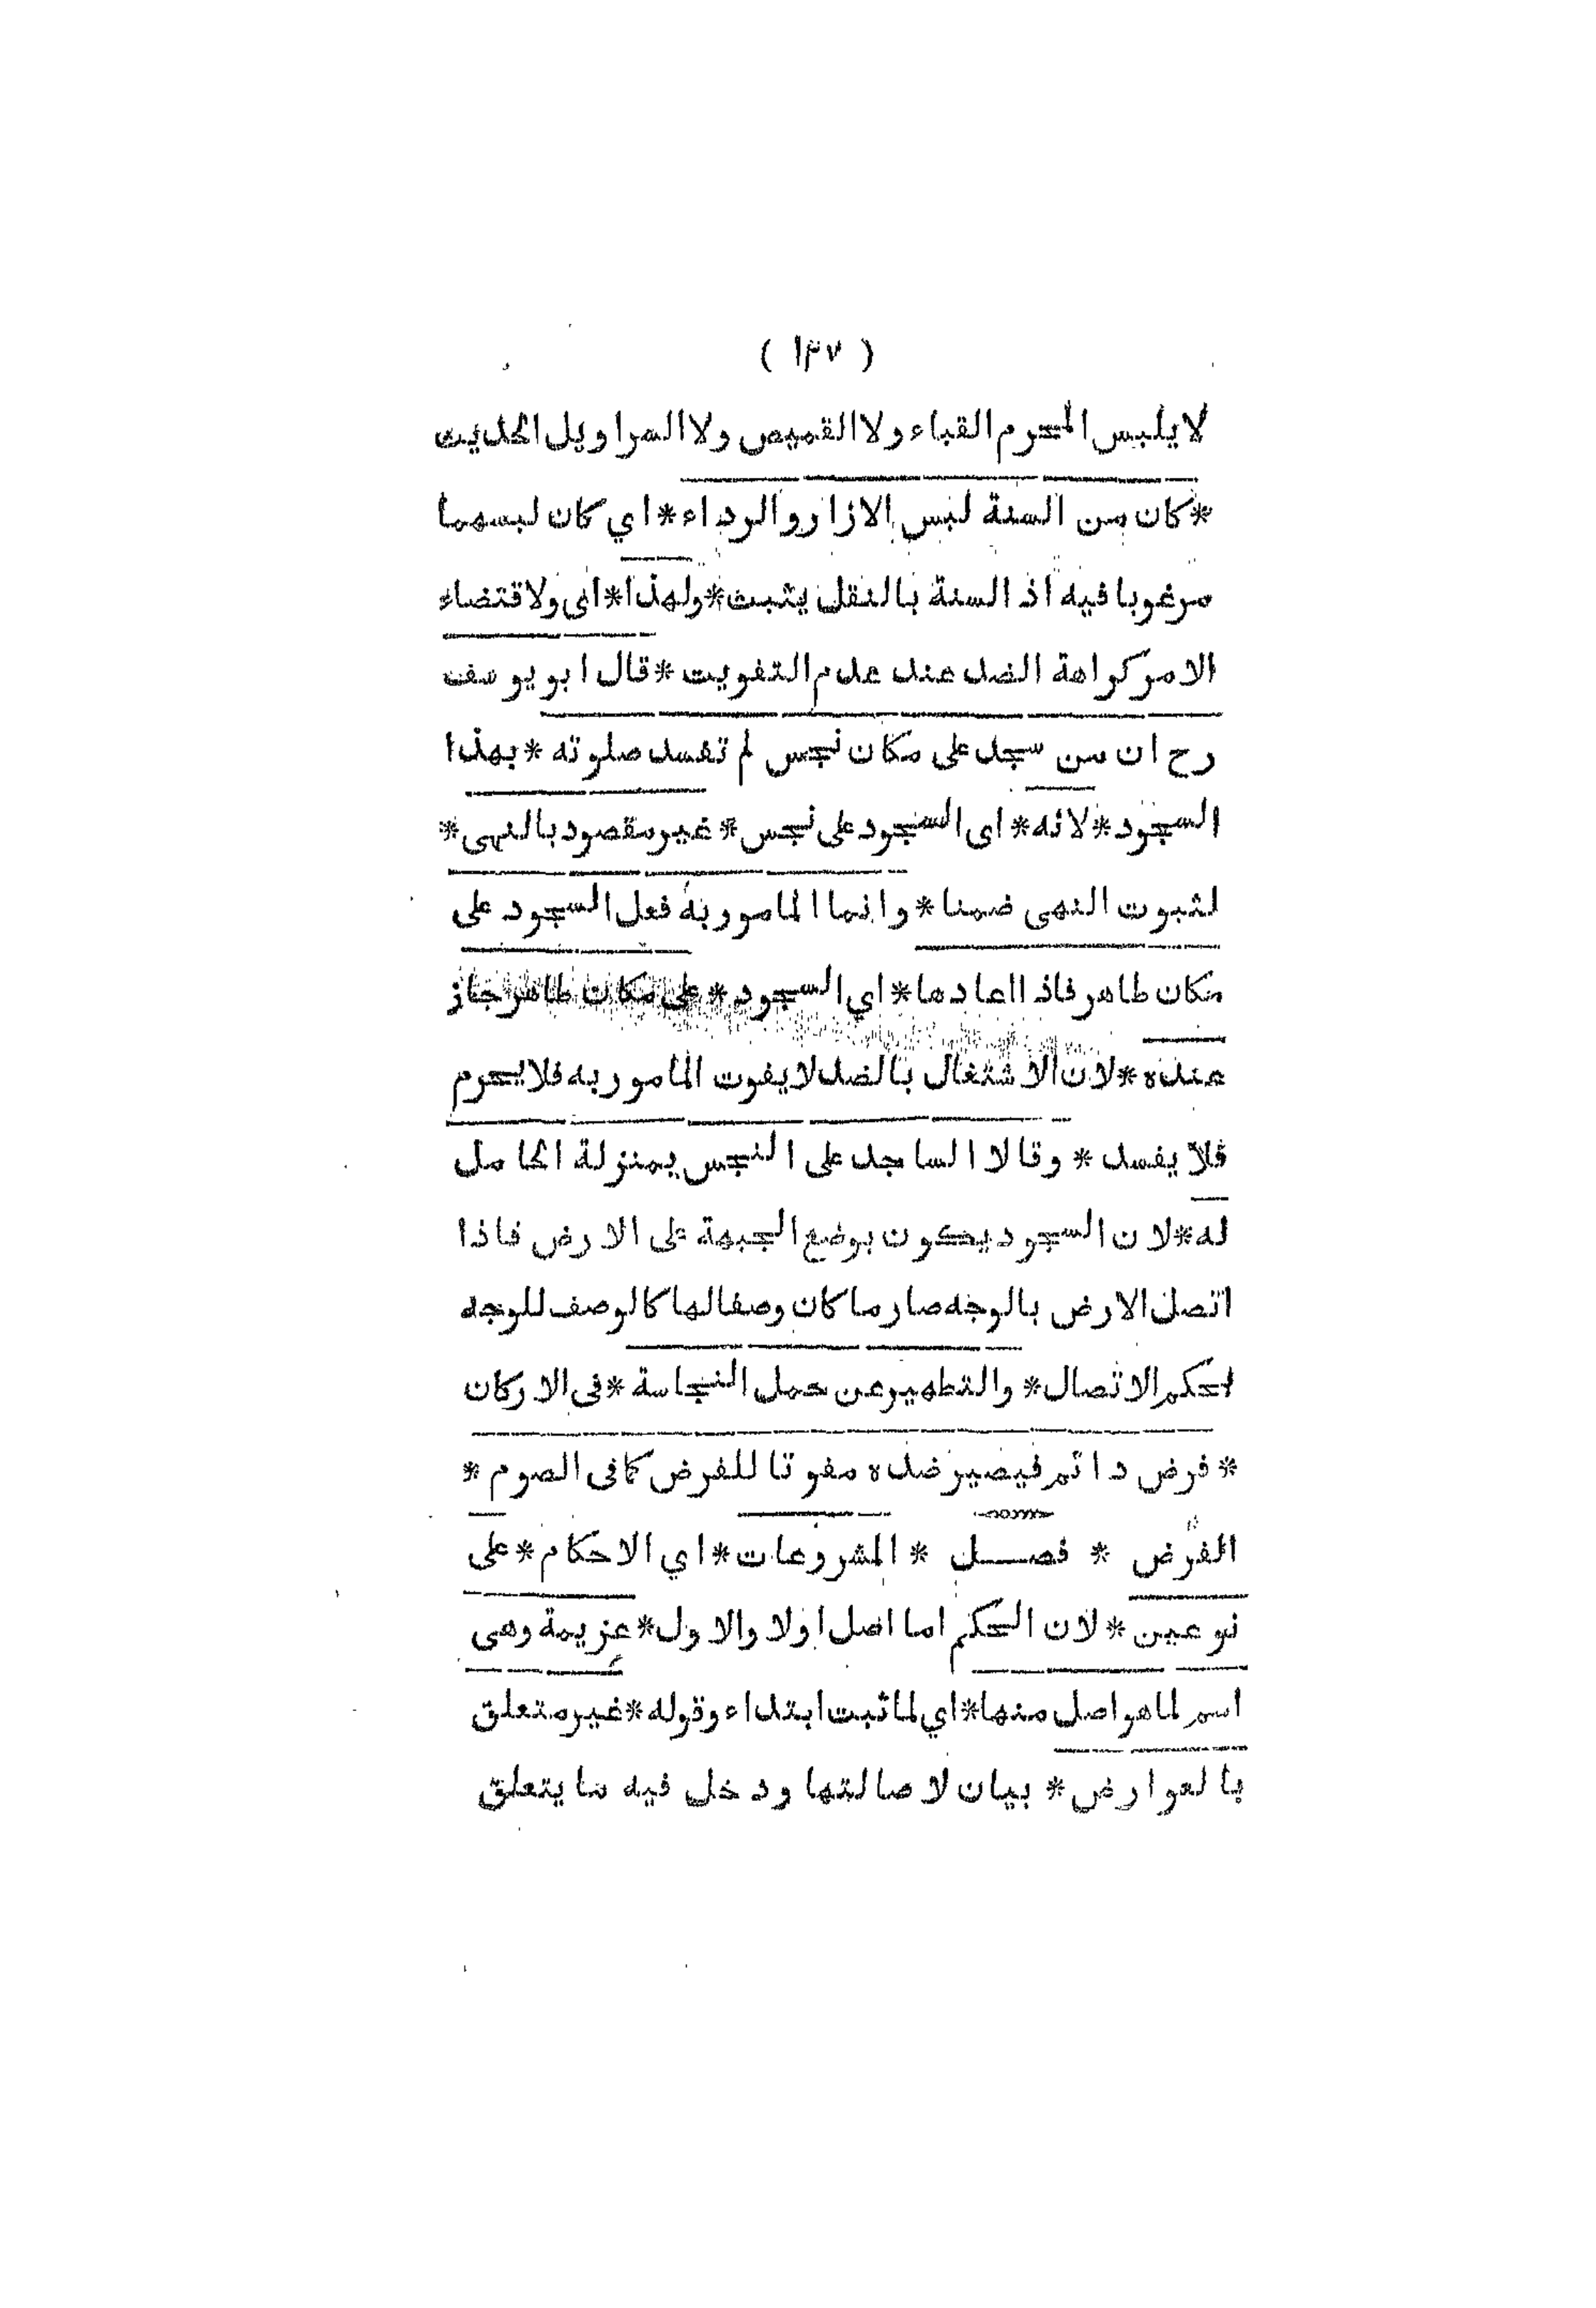 ( ١٣٧ )
لا يلبس المحرم القباء ولا القميص ولا السراويل الحديث
*كان من السنة لبس الازار والرداء*اي كان لبسهما
مرغوبا فيه اذ السنة بالنقل يثبت*ولهذا*اى ولاقتضاء
الامر كراهة الضد عند عدم التفويت*قال ابو يوسف
رح ان من سجد على مكان نجس لم تفسد صلوته*بهذا
السجود*لانه*اى السجود على نجس*غير مقصود بالنهى*
لثبوت النهى ضمنا*وانما المامور به فعل السجود على
مكان طاهر فاذا اعادها*اي السجود*على مكان طاهر جاز
عنده*لان الاشتغال بالضد لا يفوت المامور به فلا يحرم
فلا يفسد*وقالا الساجد على النجس بمنزلة الحامل
له*لان السجود يكون بوضع الجبهة على الارض فاذا
اتصل الارض بالوجه صار ما كان وصفا لها كالوصف للوجه
لحكم الاتصال*والتطهير عن حمل النجاسة*فى الاركان
*فرض دائم فيصير ضده مفوتا للفرض كما فى الصوم*
الفرض * فصل * المشروعات*اي الاحكام*على
نوعين*لان الحكم اما اصل اولا والاول*عزيمة وهى
اسم لما هو اصل منها*اي لما ثبت ابتداء وقوله*غير متعلق
بالعوارض*بيان لاصالتها ودخل فيه ما يتعلق